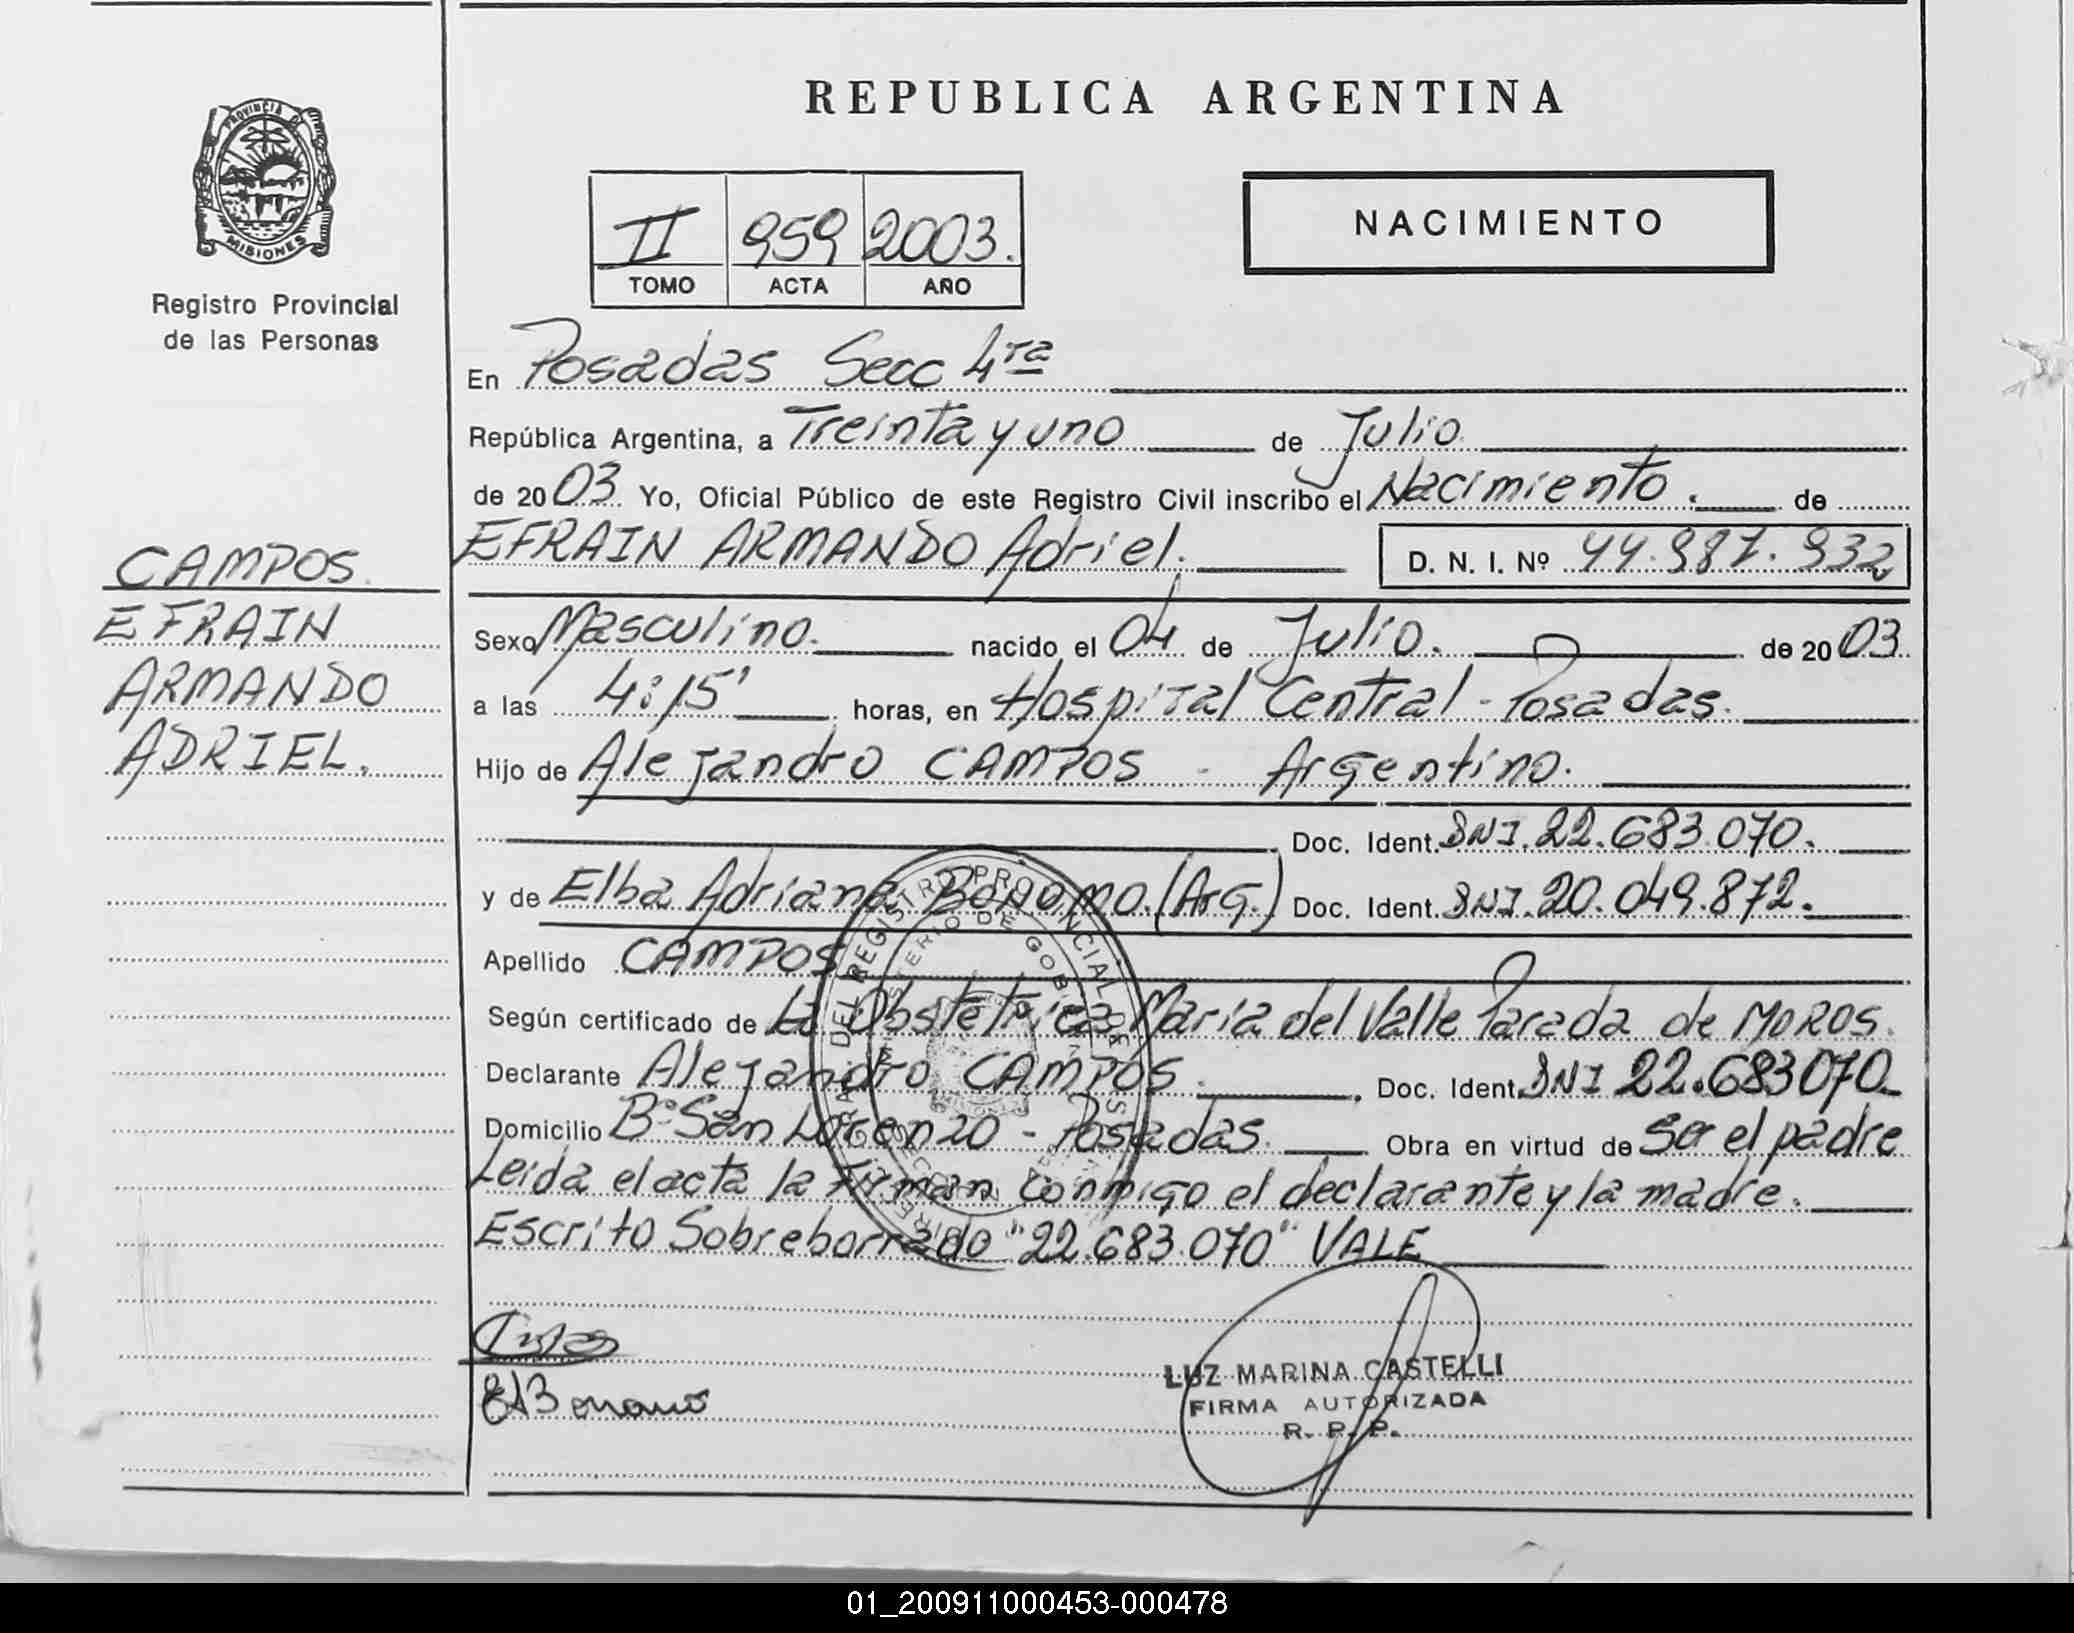 REPUBLICA ARGENTINA
PROVINCIA DE
MISIONES
Registro Provincial
de las Personas
II 959 2003.
TOMO ACTA AÑO
NACIMIENTO
CAMPOS.
EFRAIN
ARMANDO
ADRIEL.
En Posadas Secc 4ta
República Argentina, a Treinta y uno de Julio.
de 2003. Yo, Oficial Público de este Registro Civil inscribo el Nacimiento. de
EFRAIN ARMANDO Adriel. D. N. I. Nº 44.987.932
Sexo Masculino. nacido el 04 de Julio. de 2003.
a las 4:15' horas, en Hospital Central - Posadas.
Hijo de Alejandro CAMPOS - Argentino.
Doc. Ident. DNI. 22.683.070.
y de Elba Adriana BONOMO. (Arg.) Doc. Ident. DNI. 20.049.872.
Apellido CAMPOS
Según certificado de La Obstetrica Maria del Valle Parada de MOROS.
Declarante Alejandro CAMPOS. Doc. Ident. DNI 22.683070.
Domicilio Bº San Lorenzo - Posadas. Obra en virtud de Ser el padre
Leida el acta la firman conmigo el declarante y la madre.
Escrito Sobreborrado "22.683.070" VALE
LUZ MARINA CASTELLI
FIRMA AUTORIZADA
R. P. P.
01_200911000453-000478